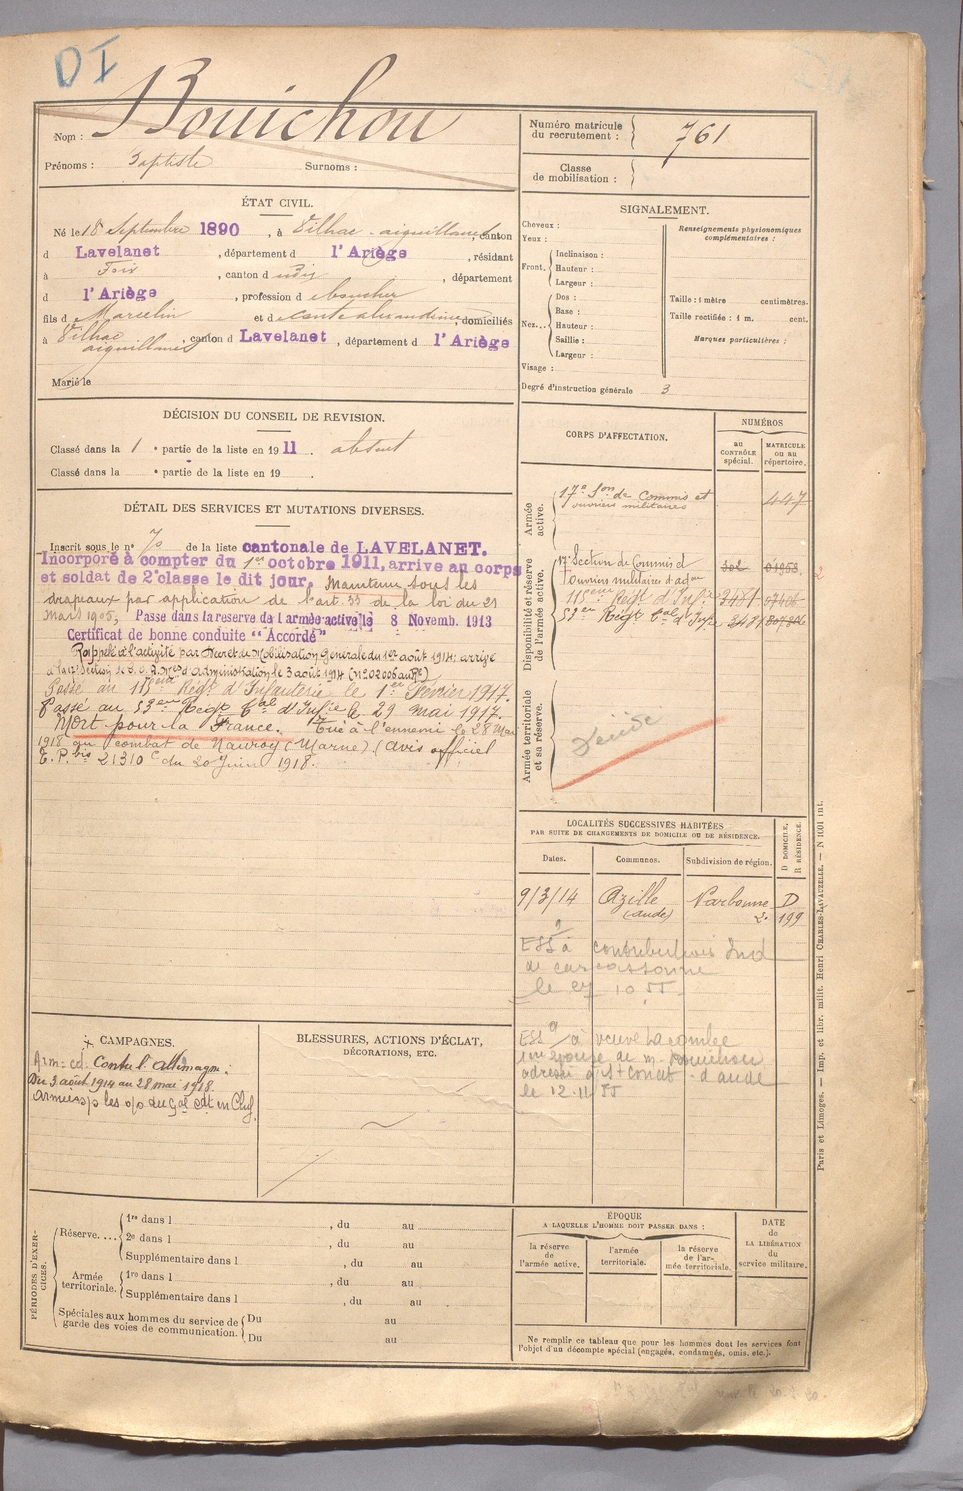 DI
Nom : Bouichou
Prénoms : Baptiste Surnoms :
Numéro matricule du recrutement : 761
Classe de mobilisation :
ÉTAT CIVIL.
Né le 18 Septembre 1890, à Vilhac-aiguillanes, canton
d Lavelanet, département d l'Ariège, résidant
à Foix, canton d udit, département
d l'Ariège, profession d boucher
fils d Marcelin et d domiciliés
à Vilhac aiguillanes, canton d Lavelanet, département d l'Ariège
Marié le
DÉCISION DU CONSEIL DE REVISION.
Classé dans la 1 e partie de la liste en 1911. absent
Classé dans la e partie de la liste en 19 .
DÉTAIL DES SERVICES ET MUTATIONS DIVERSES.
Inscrit sous le n° 70 de la liste cantonale de LAVELANET.
Incorporé à compter du 1er octobre 1911, arrive au corps
et soldat de 2e classe le dit jour. Maintenu sous les
drapeaux par application de l'art. 33 de la loi du 21
Mars 1905, Passe dans la reserve de l'armée active le 8 Novemb. 1913
Certificat de bonne conduite "Accordé"
Rappelé à l'activité par Décret de Mobilisation Générale du 1er août 1914; arrivé
à la 17e Section de C. O. A. d'Administration le 3 août 1914 (N° 02006 au Rre)
Passé au 115eme Régt d'Infanterie le 1er Février 1917.
Passé au 53eme Régt Cal d'Infie le 29 mai 1917.
Mort pour la France. Tué à l'ennemi le 28 Mai
1918 au combat de Nauroy (Marne) (avis officiel
E. P. bis 21310 c du 20 Juin 1918.
SIGNALEMENT.
Cheveux :
Yeux :
Front. Inclinaison :
Hauteur :
Largeur :
Nez... Dos :
Base :
Hauteur :
Saillie :
Largeur :
Visage :
Renseignements physionomiques complémentaires :
Taille : 1 mètre centimètres.
Taille rectifiée : 1 m. cent.
Marques particulières :
Degré d'instruction générale 3
CORPS D'AFFECTATION.
NUMÉROS
au CONTRÔLE spécial.
MATRICULE ou au répertoire.
Armée active.
17e Son de Commis et ouvriers militaires 447
Disponibilité et réserve de l'armée active.
17e Section de Commis et
ouvriers militaires d'adon
115eme Régt d'Infie 3481
53eme Régt Cal d'Infie 3481
Armée territoriale et sa réserve.
LOCALITÉS SUCCESSIVES HABITÉES
PAR SUITE DE CHANGEMENTS DE DOMICILE OU DE RÉSIDENCE.
Dates. Communes. Subdivision de région. D DOMICILE, R RÉSIDENCE.
9/3/14 Azille (Aude) Narbonne D 199
ESS à contributions Ind
de carcassonne
le 27 10 55
ESS à veuve
adresse à St Couat - d'aude
le 12-11 55
CAMPAGNES.
Contre l'Allemagne :
Du 3 août 1914 au 28 mai 1918.
Armées s/s les o/o du Gal Cdt en Chef.
BLESSURES, ACTIONS D'ÉCLAT,
DÉCORATIONS, ETC.
PÉRIODES D'EXERCICES.
Réserve.... 1re dans l , du au
2e dans l , du au
Supplémentaire dans l , du au
Armée territoriale. 1re dans l , du au
Supplémentaire dans l , du au
Spéciales aux hommes du service de garde des voies de communication. Du au
Du au
ÉPOQUE
A LAQUELLE L'HOMME DOIT PASSER DANS :
la réserve de l'armée active.
l'armée territoriale.
la réserve de l'armée territoriale.
DATE de LA LIBÉRATION du service militaire.
Ne remplir ce tableau que pour les hommes dont les services font
l'objet d'un décompte spécial (engagés, condamnés, omis, etc.).
Paris et Limoges. — Imp. et libr. milit. Henri CHARLES-LAVAUZELLE. — N 1001 int.